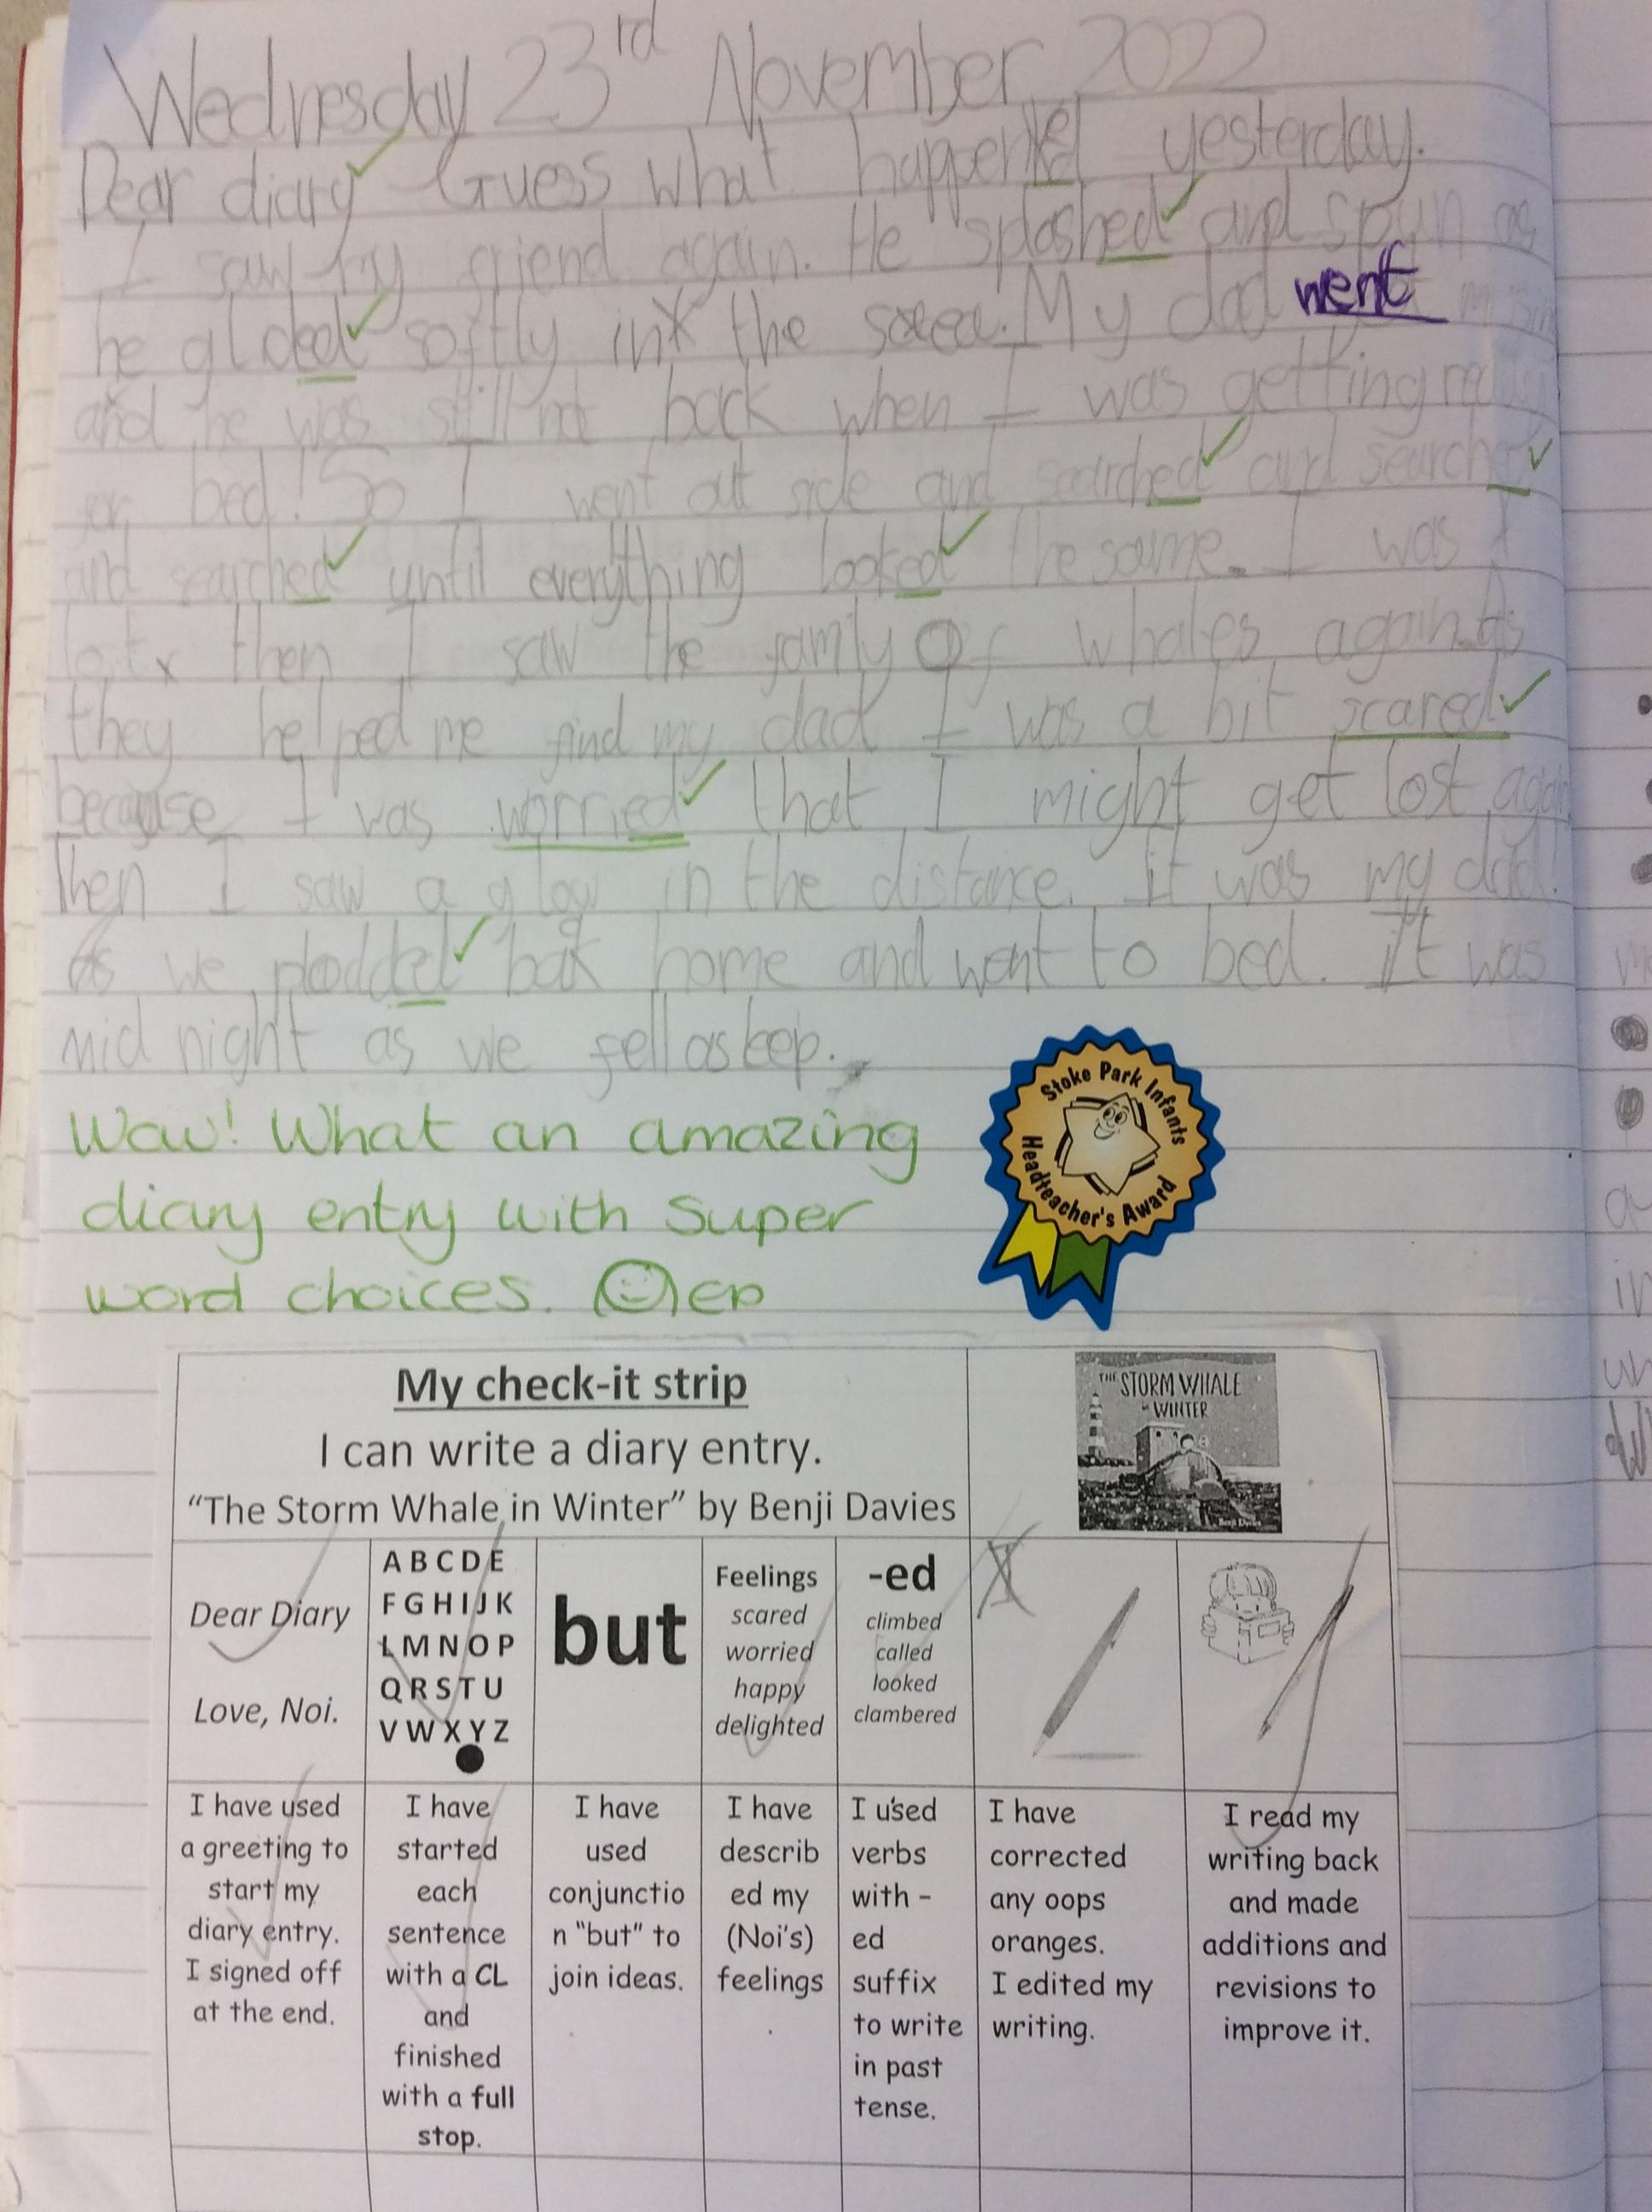 Wednesday 23rd November 2022
Dear diary Guess what happened yesterday.
I saw my friend again. He splashed and spun as
he glided softly in the sea. My dad went
and he was still not back when I was getting
for bed! So I went out side and searched and searched
and searched until everything looked the same. I was
lost then I saw the famly of whales again. As
they helped me find my dad I was a bit scared
because I was worried that I might get lost again
Then I saw a glow in the distance. It was my dad!
As we plodded bak home and went to bed. It was
mid night as we fell asleep.
Wow! What an amazing
diary entry with super
word choices. ☺ EP
Stoke Park Infants
Headteacher's Award
My check-it strip
I can write a diary entry.
"The Storm Whale in Winter" by Benji Davies
THE STORM WHALE
IN WINTER
Benji Davies
Dear Diary
Love, Noi.
A B C D E
F G H I J K
L M N O P
Q R S T U
V W X Y Z
but
Feelings
scared
worried
happy
delighted
-ed
climbed
called
looked
clambered
I have used
a greeting to
start my
diary entry.
I signed off
at the end.
I have
started
each
sentence
with a CL
and
finished
with a full
stop.
I have
used
conjunctio
n "but" to
join ideas.
I have
describ
ed my
(Noi's)
feelings
I used
verbs
with -
ed
suffix
to write
in past
tense.
I have
corrected
any oops
oranges.
I edited my
writing.
I read my
writing back
and made
additions and
revisions to
improve it.